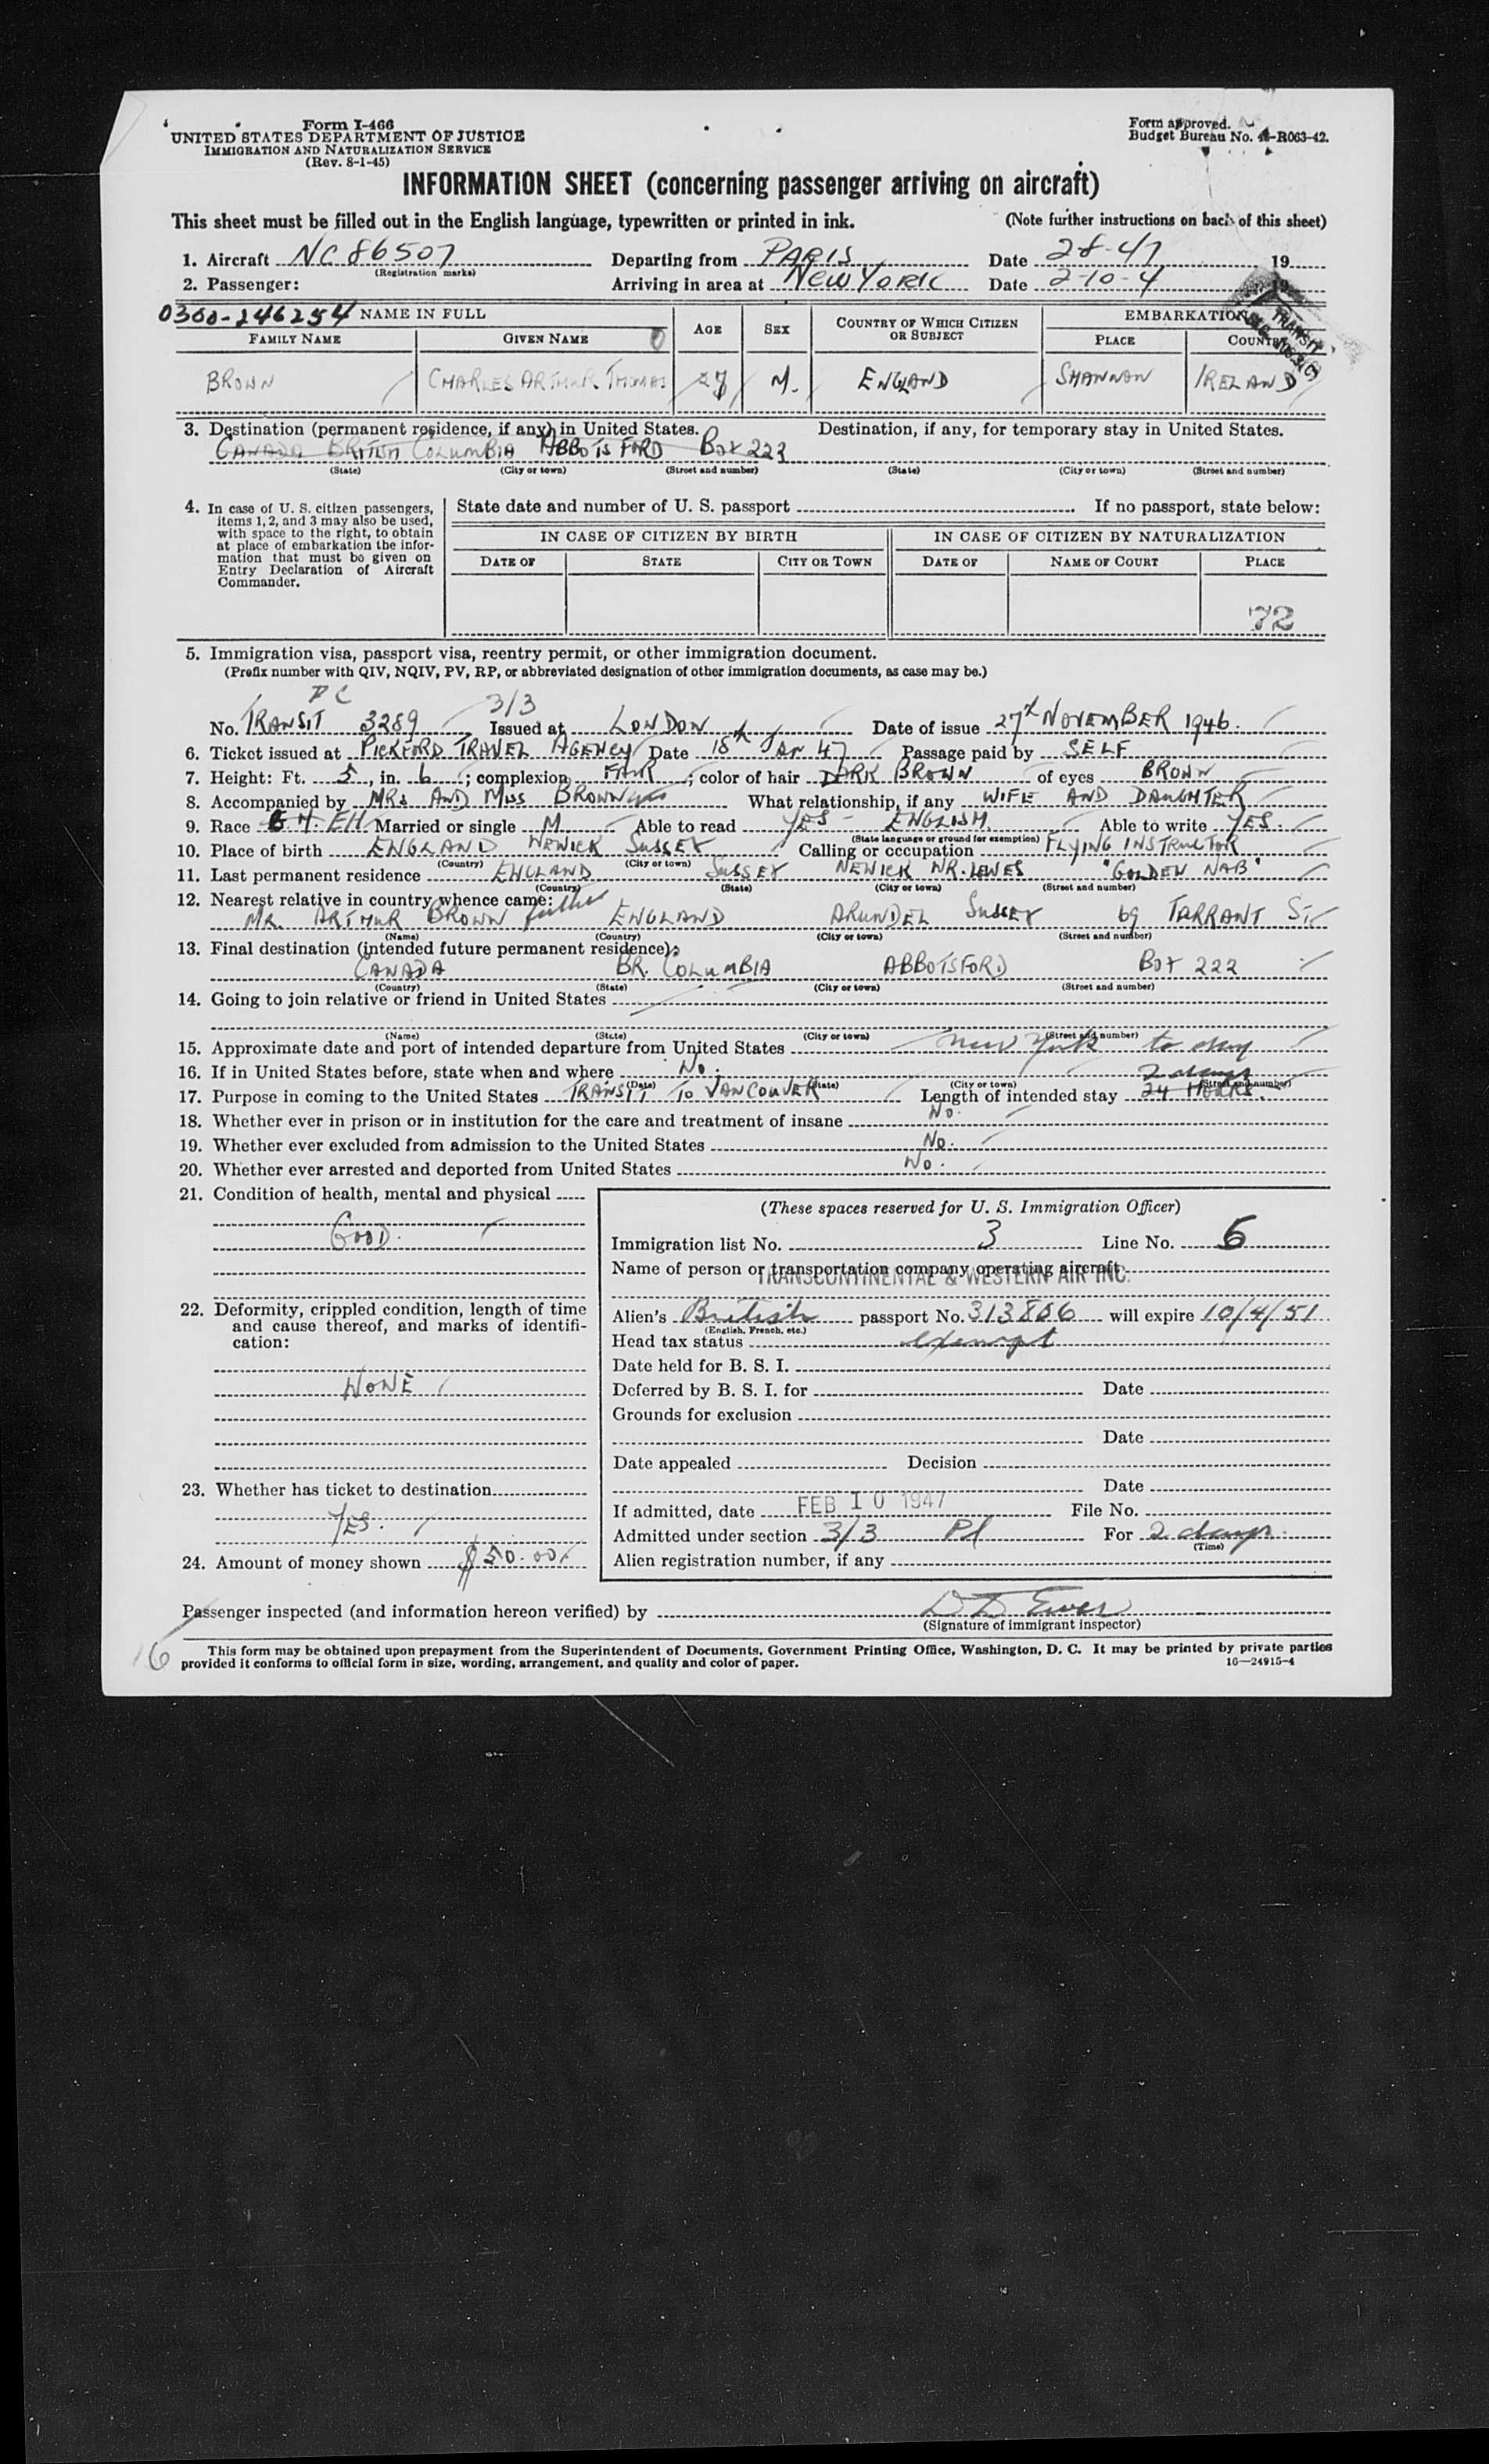 Form I-466
UNITED STATES DEPARTMENT OF JUSTICE
IMMIGRATION AND NATURALIZATION SERVICE
(Rev. 8-1-45)
Form approved.
Budget Bureau No. -R063-42.
INFORMATION SHEET (concerning passenger arriving on aircraft)
This sheet must be filled out in the English language, typewritten or printed in ink. (Note further instructions on back of this sheet)
1. Aircraft NC 86507 Departing from PARIS Date 2-8-47 19
(Registration marks)
2. Passenger: Arriving in area at NEW YORK Date 2-10-4
0300-246254 NAME IN FULL AGE SEX COUNTRY OF WHICH CITIZEN OR SUBJECT EMBARKATION
FAMILY NAME GIVEN NAME PLACE COUNTRY
TRANSIT
BROWN CHARLES ARTHUR THOMAS M. ENGLAND SHANNON IRELAND
3. Destination (permanent residence, if any) in United States. Destination, if any, for temporary stay in United States.
CANADA BRITISH COLUMBIA ABBOTSFORD BOX 222
(State) (City or town) (Street and number) (State) (City or town) (Street and number)
4. In case of U. S. citizen passengers, items 1, 2, and 3 may also be used, with space to the right, to obtain at place of embarkation the information that must be given on Entry Declaration of Aircraft Commander.
State date and number of U. S. passport If no passport, state below:
IN CASE OF CITIZEN BY BIRTH IN CASE OF CITIZEN BY NATURALIZATION
DATE OF STATE CITY OR TOWN DATE OF NAME OF COURT PLACE
72
5. Immigration visa, passport visa, reentry permit, or other immigration document.
(Prefix number with QIV, NQIV, PV, RP, or abbreviated designation of other immigration documents, as case may be.)
3/3
No. TRANSIT 3289 Issued at LONDON Date of issue 27th NOVEMBER 1946.
6. Ticket issued at PICKFORD TRAVEL AGENCY Date 18th JAN 47 Passage paid by SELF
7. Height: Ft. 5, in. 6; complexion FAIR; color of hair DARK BROWN of eyes BROWN
8. Accompanied by MRS AND MISS BROWN What relationship, if any WIFE AND DAUGHTER
9. Race EH Married or single M Able to read YES - ENGLISH. Able to write YES.
(State language or ground for exemption)
10. Place of birth ENGLAND NEWICK SUSSEX Calling or occupation FLYING INSTRUCTOR
(Country) (City or town)
11. Last permanent residence ENGLAND SUSSEX NEWICK NR. LEWES "GOLDEN NAB"
(Country) (State) (City or town) (Street and number)
12. Nearest relative in country whence came:
MR. ARTHUR BROWN father ENGLAND ARUNDEL SUSSEX 69 TARRANT ST.
(Name) (Country) (City or town) (Street and number)
13. Final destination (intended future permanent residence):
CANADA BR. COLUMBIA ABBOTSFORD BOX 222
(Country) (State) (City or town) (Street and number)
14. Going to join relative or friend in United States
(Name) (State) (City or town) (Street and number)
15. Approximate date and port of intended departure from United States New York to day
16. If in United States before, state when and where No. 2 days
(Date) (State) (City or town) (Street and number)
17. Purpose in coming to the United States TRANSIT TO VANCOUVER Length of intended stay 24 HOURS.
18. Whether ever in prison or in institution for the care and treatment of insane No.
19. Whether ever excluded from admission to the United States No.
20. Whether ever arrested and deported from United States No.
21. Condition of health, mental and physical
GOOD.
22. Deformity, crippled condition, length of time and cause thereof, and marks of identification:
NONE
23. Whether has ticket to destination
YES.
24. Amount of money shown $50.00
(These spaces reserved for U. S. Immigration Officer)
Immigration list No. 3 Line No. 6
Name of person or transportation company operating aircraft
TRANSCONTINENTAL & WESTERN AIR INC.
Alien's British passport No. 313886 will expire 10/4/51
(English, French, etc.)
Head tax status exempt
Date held for B. S. I.
Deferred by B. S. I. for Date
Grounds for exclusion
Date
Date appealed Decision
Date
If admitted, date FEB 10 1947 File No.
Admitted under section 3/3 For 2 days
(Time)
Alien registration number, if any
Passenger inspected (and information hereon verified) by
(Signature of immigrant inspector)
16
This form may be obtained upon prepayment from the Superintendent of Documents, Government Printing Office, Washington, D. C. It may be printed by private parties
provided it conforms to official form in size, wording, arrangement, and quality and color of paper. 16—24915-4